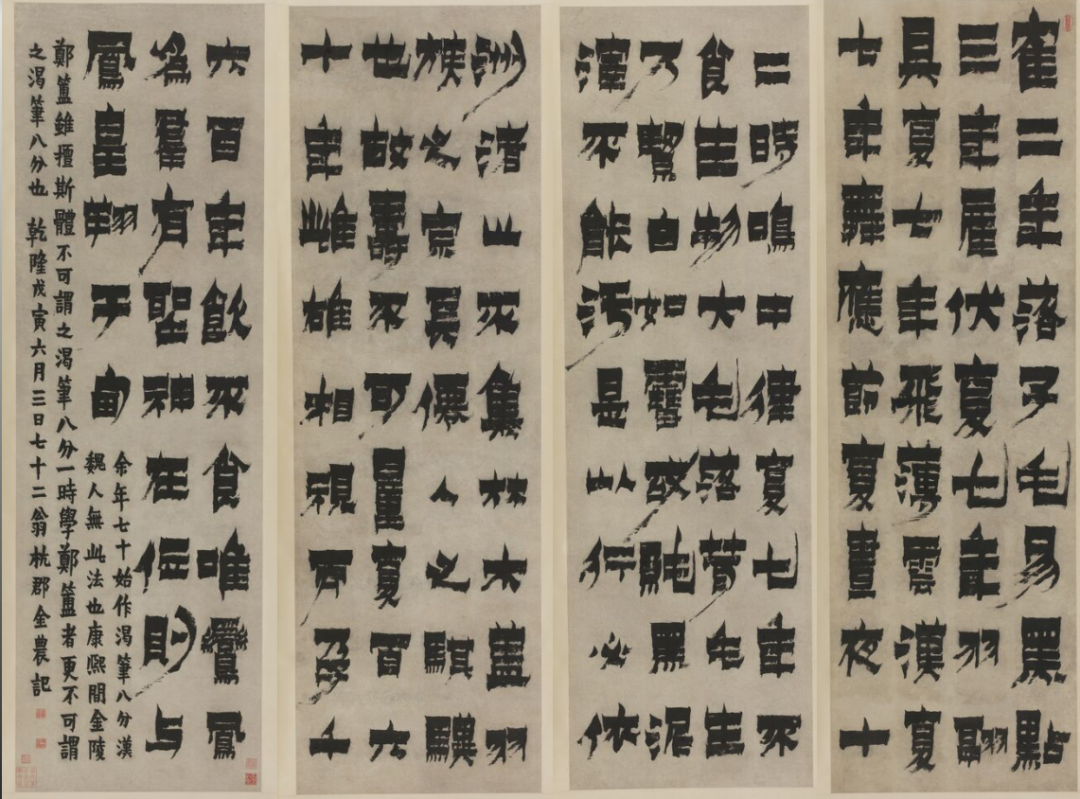 寉二年落子毛易黑點
三年產伏复七年羽翮
具复七年飛薄雲漢复
七年舞應節复晝夜十
二時鳴中律复七年不
食生物大毛落茸毛生
乃白如雪純黑泥
渾不能污是以行必依
洲渚止不集林木蓋羽
族之宗長僊人之騏驥
也故壽不可量复百六
十年雌雄相視而孕千
六百年飲不食唯鸞鳳
為羣有聖神在位則与
鳳皇翔于甸
余年七十始作渴筆八分漢
魏人無此法也康熙間金陵
鄭簠雖擅斯體不可謂之渴筆八分一時學鄭簠者更不可謂
之渴筆八分也 乾隆戊寅六月三日七十二翁杭郡金農記